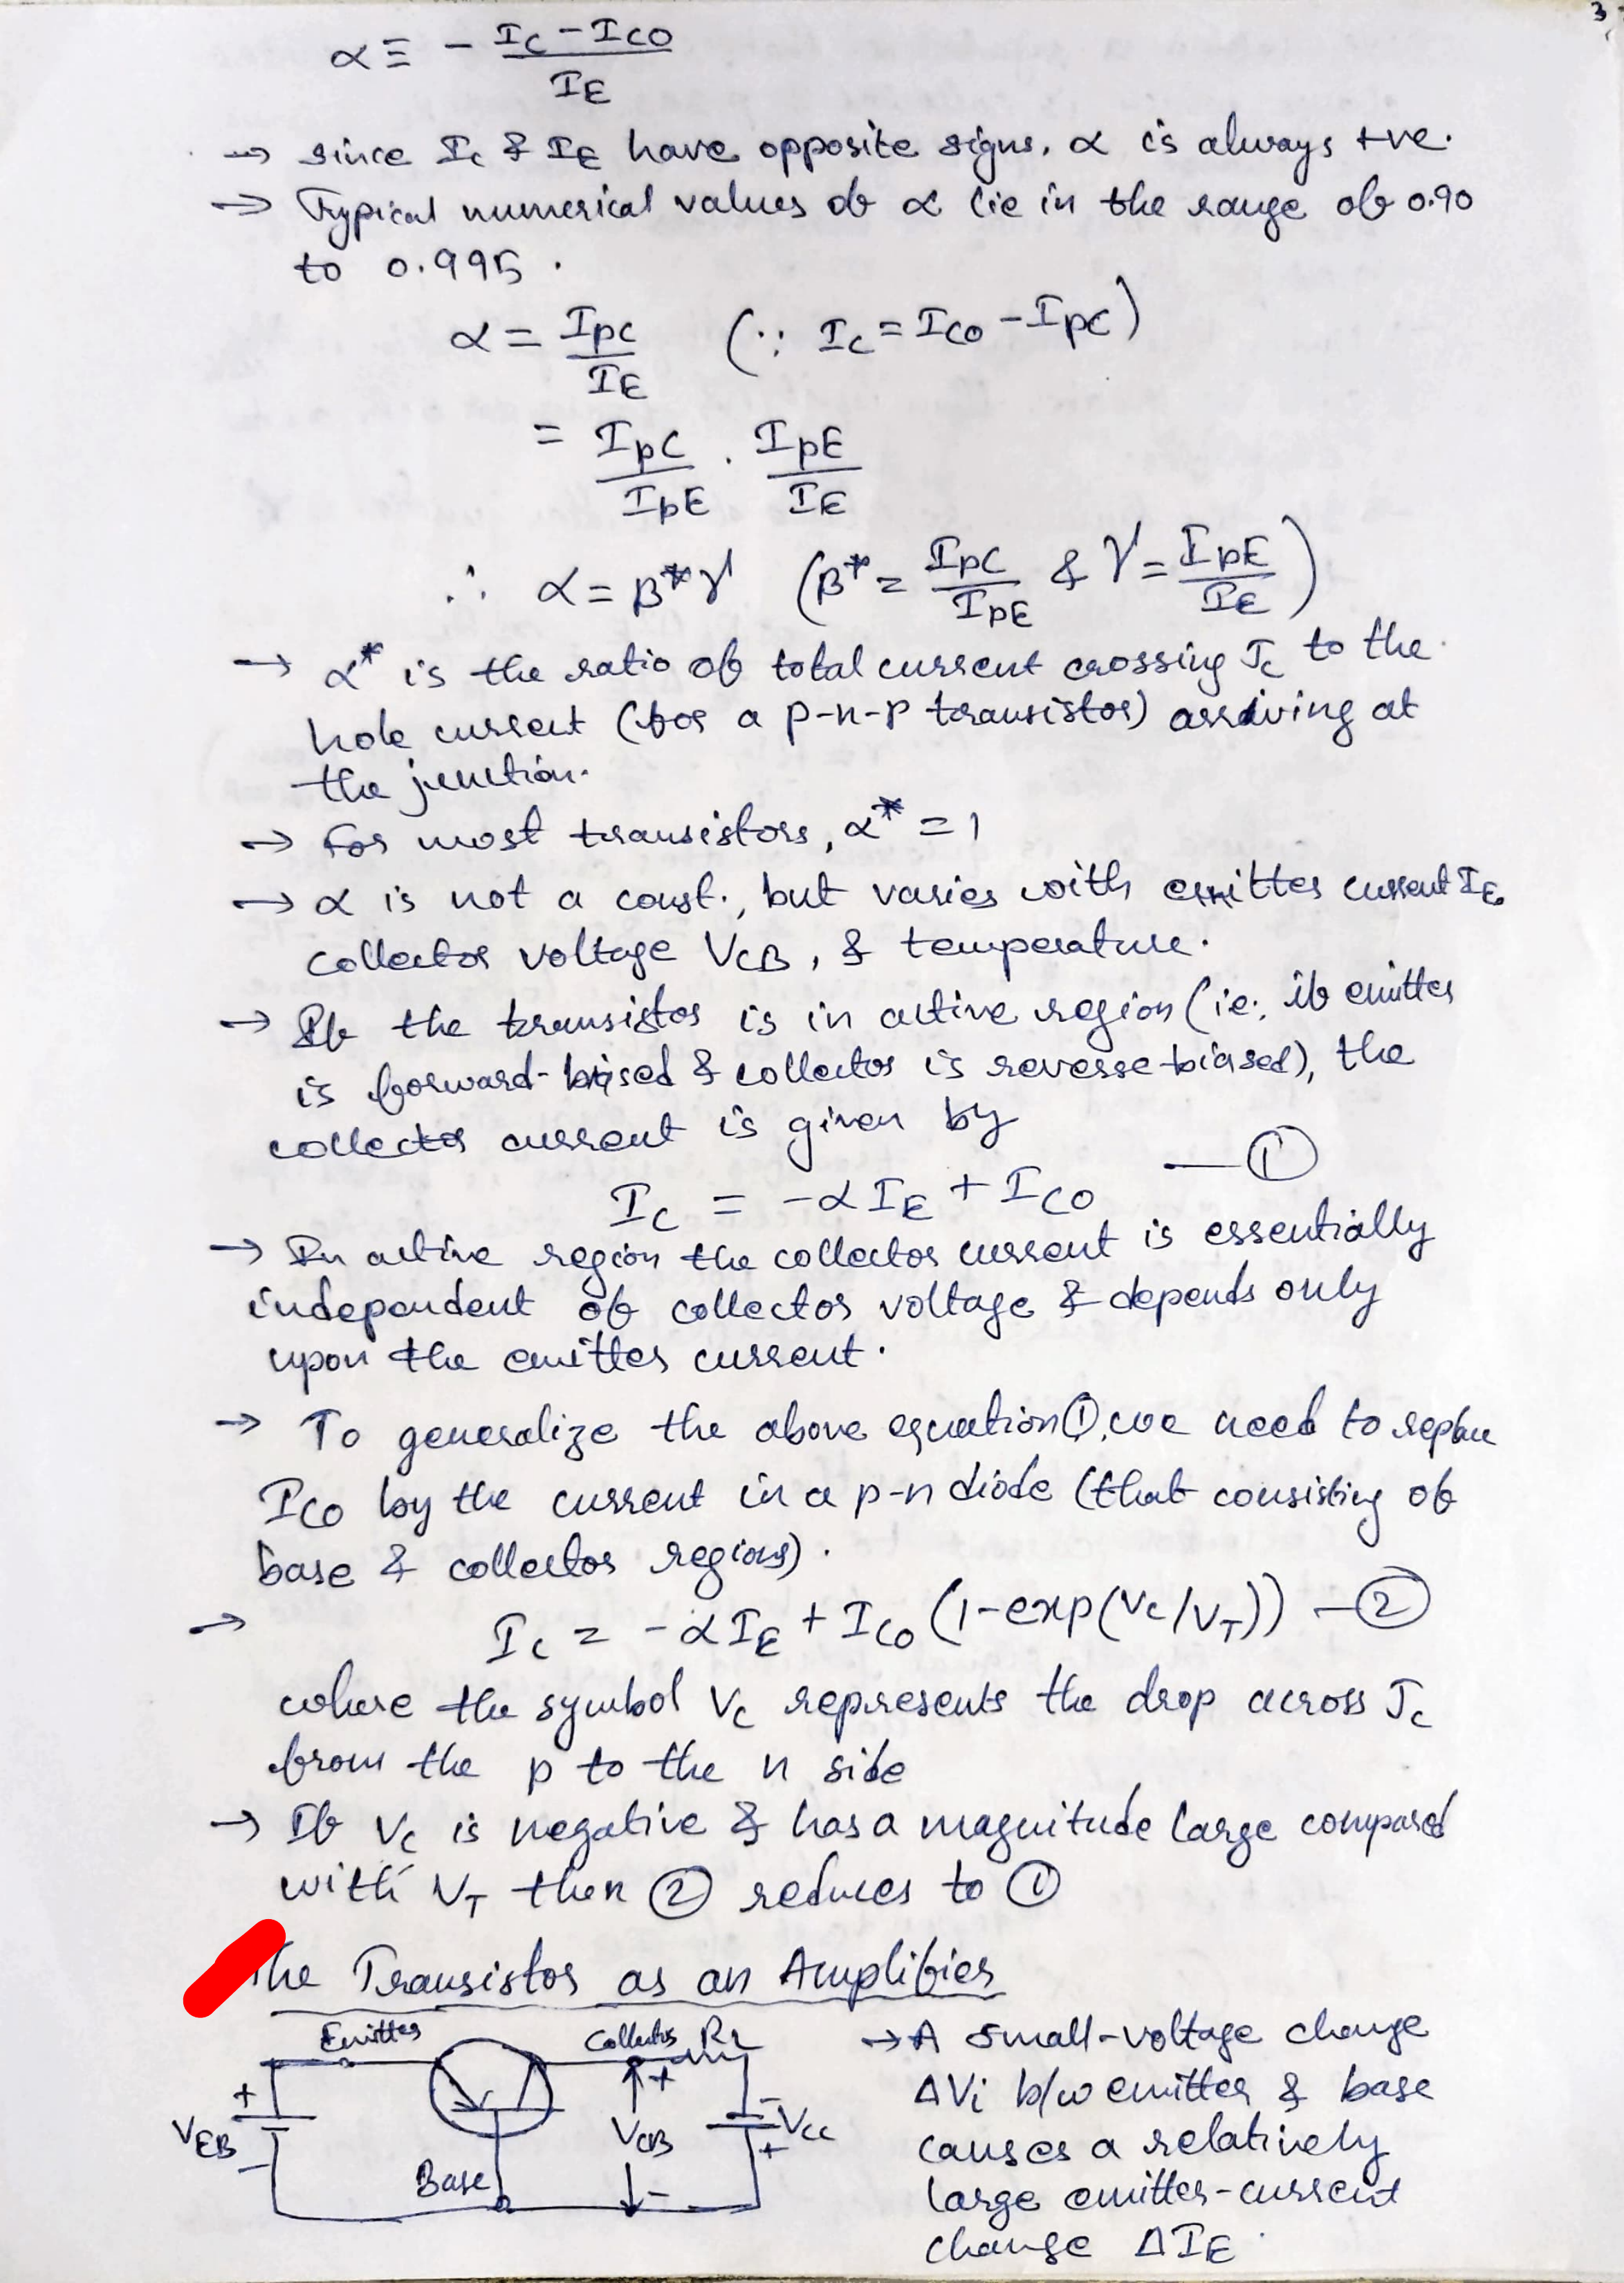 3
α ≡ - (I_C - I_CO) / I_E
→ since I_C & I_E have opposite signs, α is always +ve.
→ Typical numerical values of α lie in the range of 0.90
to 0.995.
α = I_pC / I_E (∵ I_C = I_CO - I_pC)
= I_pC / I_pE . I_pE / I_E
∴ α = β*γ (β* = I_pC / I_pE & γ = I_pE / I_E)
→ α* is the ratio of total current crossing J_C to the
hole current (for a p-n-p transistor) arriving at
the junction.
→ For most transistors, α* = 1
→ α is not a const., but varies with emitter current I_E,
collector voltage V_CB, & temperature.
→ If the transistor is in active region (ie; if emitter
is forward-biased & collector is reverse-biased), the
collector current is given by
I_C = -αI_E + I_CO — ①
→ In active region the collector current is essentially
independent of collector voltage & depends only
upon the emitter current.
→ To generalize the above equation ①, we need to replace
I_CO by the current in a p-n diode (that consisting of
base & collector regions).
→ I_C = -αI_E + I_CO (1-exp(V_C/V_T)) — ②
where the symbol V_C represents the drop across J_C
from the p to the n side
→ If V_C is negative & has a magnitude large compared
with V_T then ② reduces to ①
The Transistor as an Amplifier
Emitter
Collector R_L
+
V_EB
-
Base
+
V_CB
-
-
V_CC
+
→ A small-voltage change
ΔVi b/w emitter & base
causes a relatively
large emitter-current
change ΔI_E.